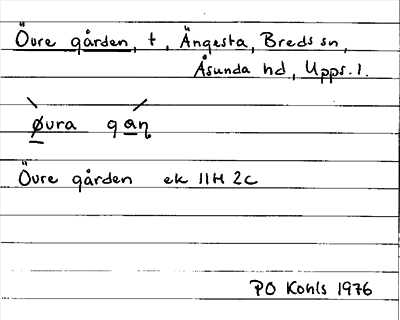 Övre gården, t, Ängesta, Breds sn,
Åsunda hd, Upps. l.
øvra gaŋ
Övre gården ek 11H 2c
PO Kohls 1976